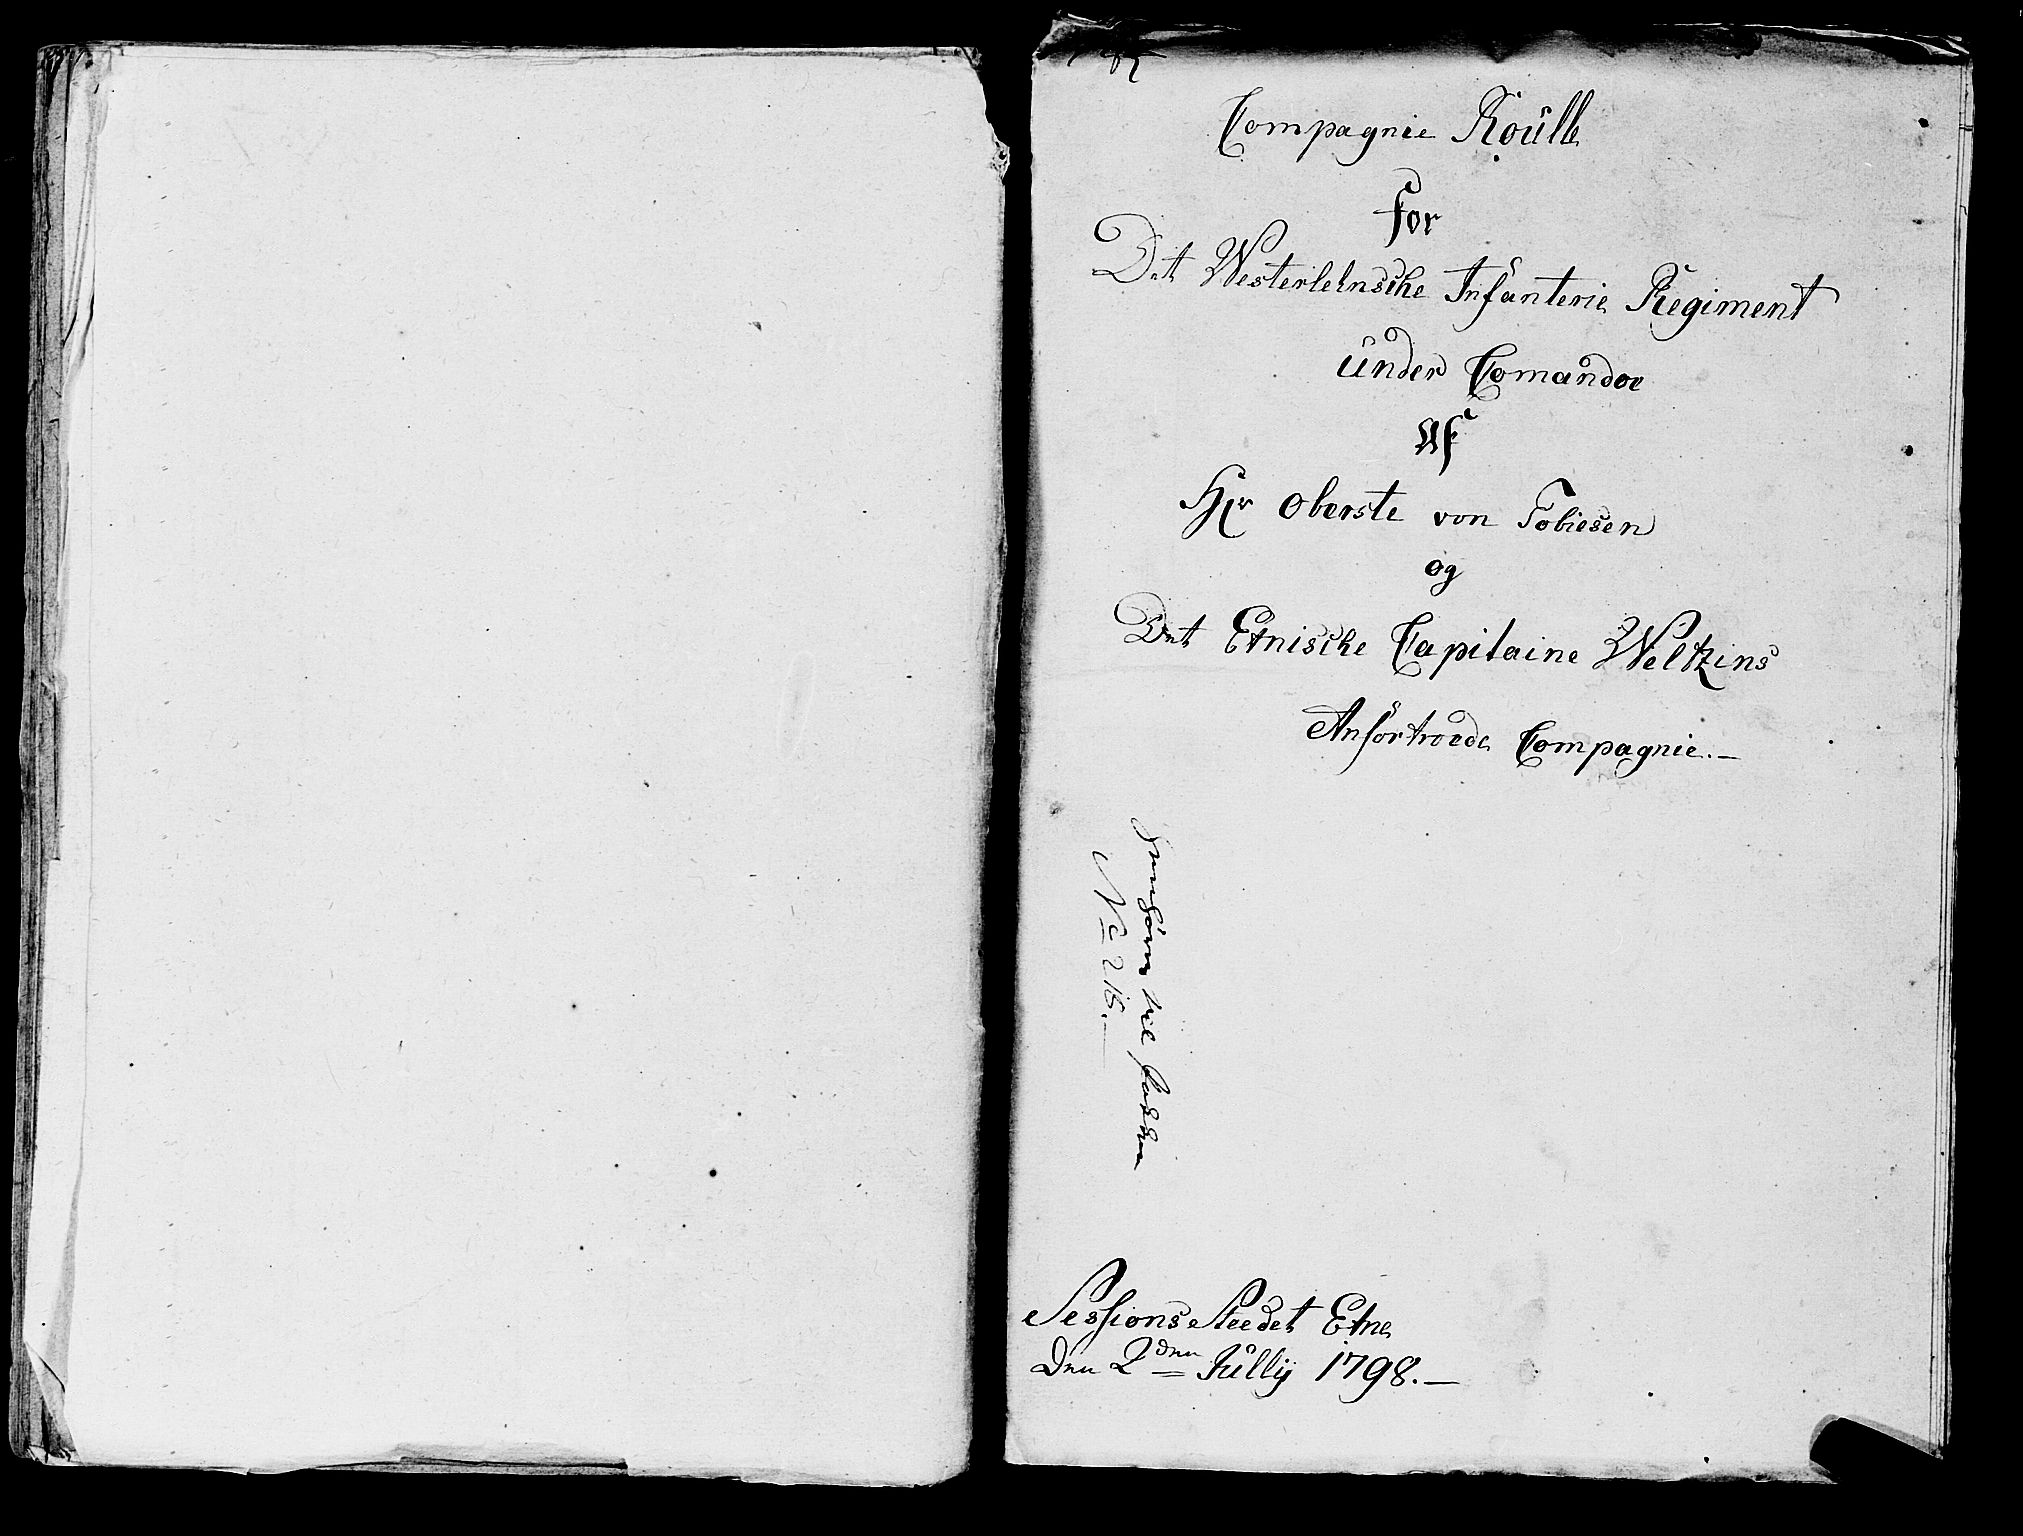 Compagnie Roülle
for
Det Westerlehnsche Infanterie Regiment
ünder Comandoe
Af
Hr Oberste von Tobiesen
og
Det Etnische Capitaine Weltzins
Anfortroede Compagnie.—
til
No 218.—
Sessions Steedet Etne
Den 2den Jüllij 1798.—